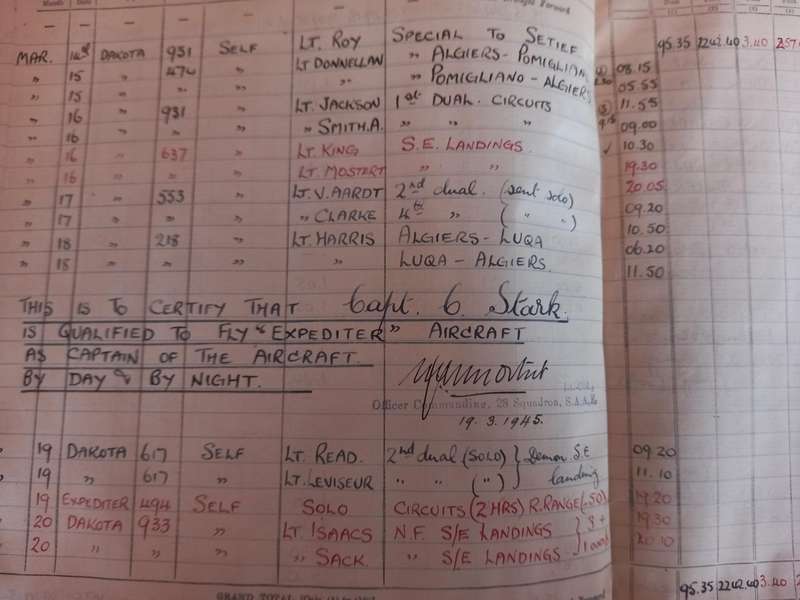 Month Date
95.35 2242.40 3.40
MAR. 14th DAKOTA 931 SELF LT. ROY SPECIAL TO SETIEF
" 15 " 474 " LT DONNELLAN " ALGIERS - POMIGLIANO 08.15
" 15 " " " " " POMIGLIANO - ALGIERS 05.55
" 16 " 931 " LT. JACKSON 1st DUAL. CIRCUITS 11.55
" 16 " " " " SMITH.A. " " " 09.00
" 16 " 637 " LT. KING S.E. LANDINGS. 10.30
" 16 " " " LT. MOSTERT " " 19.30
" 17 " 553 " LT. V. AARDT 2nd dual. (sent solo) 20.05
" 17 " " " " CLARKE 4th " ( " " ) 09.20
" 18 " 218 " LT. HARRIS ALGIERS - LUQA 10.50
" 18 " " " " LUQA - ALGIERS. 06.20
11.50
THIS IS TO CERTIFY THAT Capt. G. Stark.
IS QUALIFIED TO FLY "EXPEDITER" AIRCRAFT
AS CAPTAIN OF THE AIRCRAFT.
BY DAY & BY NIGHT.
Officer Commanding, 28 Squadron, S.A.A.F.
19.3.1945.
" 19 DAKOTA 617 SELF LT. READ. 2nd dual (SOLO) } Demon. S.E 09.20
" 19 " 617 " LT. LEVISEUR " " ( " ) } landing 11.10
19 EXPEDITER 494 SELF SOLO CIRCUITS (2 HRS) R. RANGE (.50) 19.20
20 DAKOTA 933 " LT. ISAACS N.F. S/E LANDINGS } 3 + 19.30
20 " " " " SACK. " S/E LANDINGS } 20.10
GRAND TOTAL
95.35 2242.40 3.40